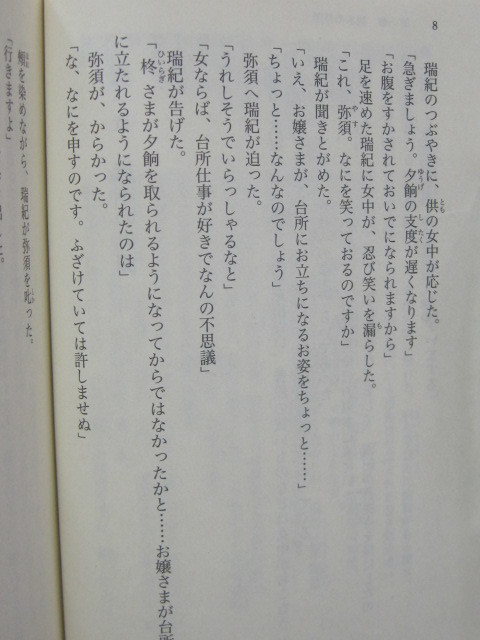 8
瑞紀のつぶやきに、供の女中が応じた。
「急ぎましょう。夕餉の支度が遅くなります」
「お腹をすかされておいでになられますから」
足を速めた瑞紀に女中が、忍び笑いを漏らした。
「これ、弥須。なにを笑っておるのですか」
瑞紀が聞きとがめた。
「いえ、お嬢さまが、台所にお立ちになるお姿をちょっと……」
「ちょっと……なんなのでしょう」
弥須へ瑞紀が迫った。
「うれしそうでいらっしゃるなと」
「女ならば、台所仕事が好きでなんの不思議」
瑞紀が告げた。
「柊さまが夕餉を取られるようになってからではなかったかと……お嬢さまが台所
に立たれるようになられたのは」
弥須が、からかった。
「な、なにを申すのです。ふざけていては許しませぬ」
頰を染めながら、瑞紀が弥須を叱った。
「行きますよ」